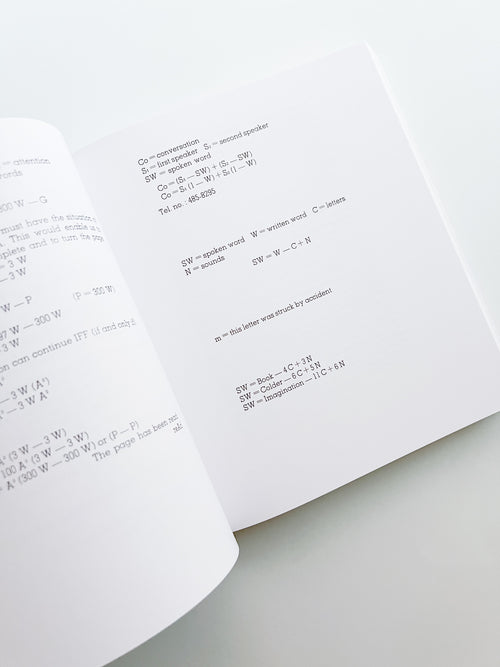 = attention
words
300 W — G
must have the situation
A. This would enable us
plete and to turn the page.
— 3 W
— 3 W
W — P (P = 300 W)
97 W — 300 W
3 W
on can continue IFF (if and only if
— 3 W (A³)
— 3 W A³
A³ (3 W — 3 W)
100 A³ (3 W — 3 W)
= A³ (300 W — 300 W) or (P — P)
The page has been
Co = conversation
S₁ = first speaker S₂ = second speaker
SW = spoken word
Co = (S₁ — SW) + (S₂ — SW)
Co = S₁ (1 — W) + S₂ (1 — W)
Tel. no.: 485-8295
SW = spoken word W = written word C = letters
N = sounds
SW = W — C + N
m = this letter was struck by accident
SW = Book — 4 C + 3 N
SW = Colder — 6 C + 5 N
SW = Imagination — 11 C + 6 N